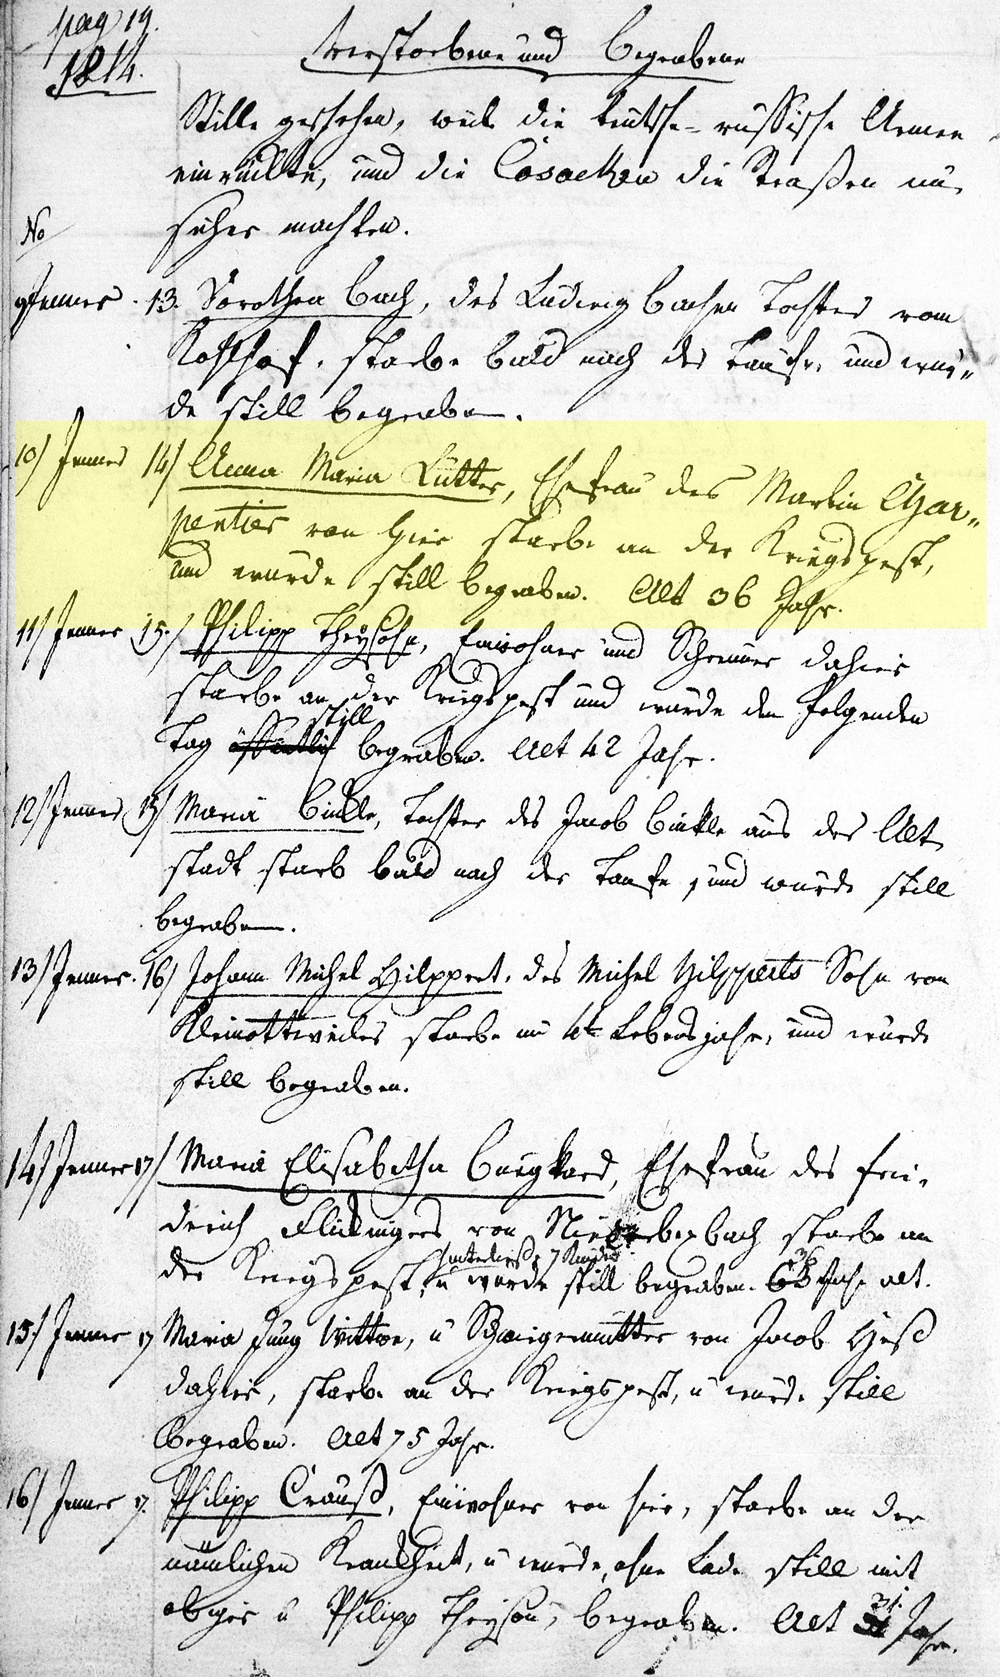 pag 19.
1814.
Verstorbene und Begrabene
Stille geschehen, weil die teutsch-russische Armee
einrückte, und die Cosacken die Straßen un-
sicher machten.
No
9/ Jenner. 13. Dorothea Bach, des Ludwig Bachen Tochter vom
Kohlhof, starbe bald nach der Taufe, und wur-
de still begraben.
10/ Jenner 14/ Anna Maria Lütter, Ehefrau des Martin Char-
pentier von hier starbe an der Kriegspest,
und wurde still begraben. Alt 36 Jahr.
11/ Jenner 15./ Philipp Theysohn, Einwohner und Schreiner dahier
starbe an der Kriegspest und wurde den folgenden
still
Tag öffentlich begraben. Alt 42 Jahr.
12/ Jenner 15/ Maria Binkle, Tochter des Jacob Binkle aus der Alt
stadt starb bald nach der Taufe, und wurde still
begraben.
13/ Jenner. 16/ Johann Michel Hilppert, des Michel Hilpperts Sohn von
Kleinottweiler starbe im 4t Lebensjahr, und wurde
still begraben.
14/ Jenner 17/ Maria Elisabetha Burgkard, Ehefrau des Frie-
derich Flickingers von Niederbexbach starbe an
hinterließ 7 Kinder
der Kriegspest, u wurde still begraben. 36 Jahr alt.
15/ Jenner 17 Maria Jung Wittwe, u Schwiegermutter von Jacob Heß
dahier, starbe an der Kriegspest, u wurde still
begraben. Alt 75 Jahr.
16/ Jenner 17. Philipp Crauß, Einwohner von hier, starbe an der
nämlichen Krankheit, u wurde, ohne Lade still mit
obiger u Philipp Theysohn, begraben. Alt 31. Jahr.